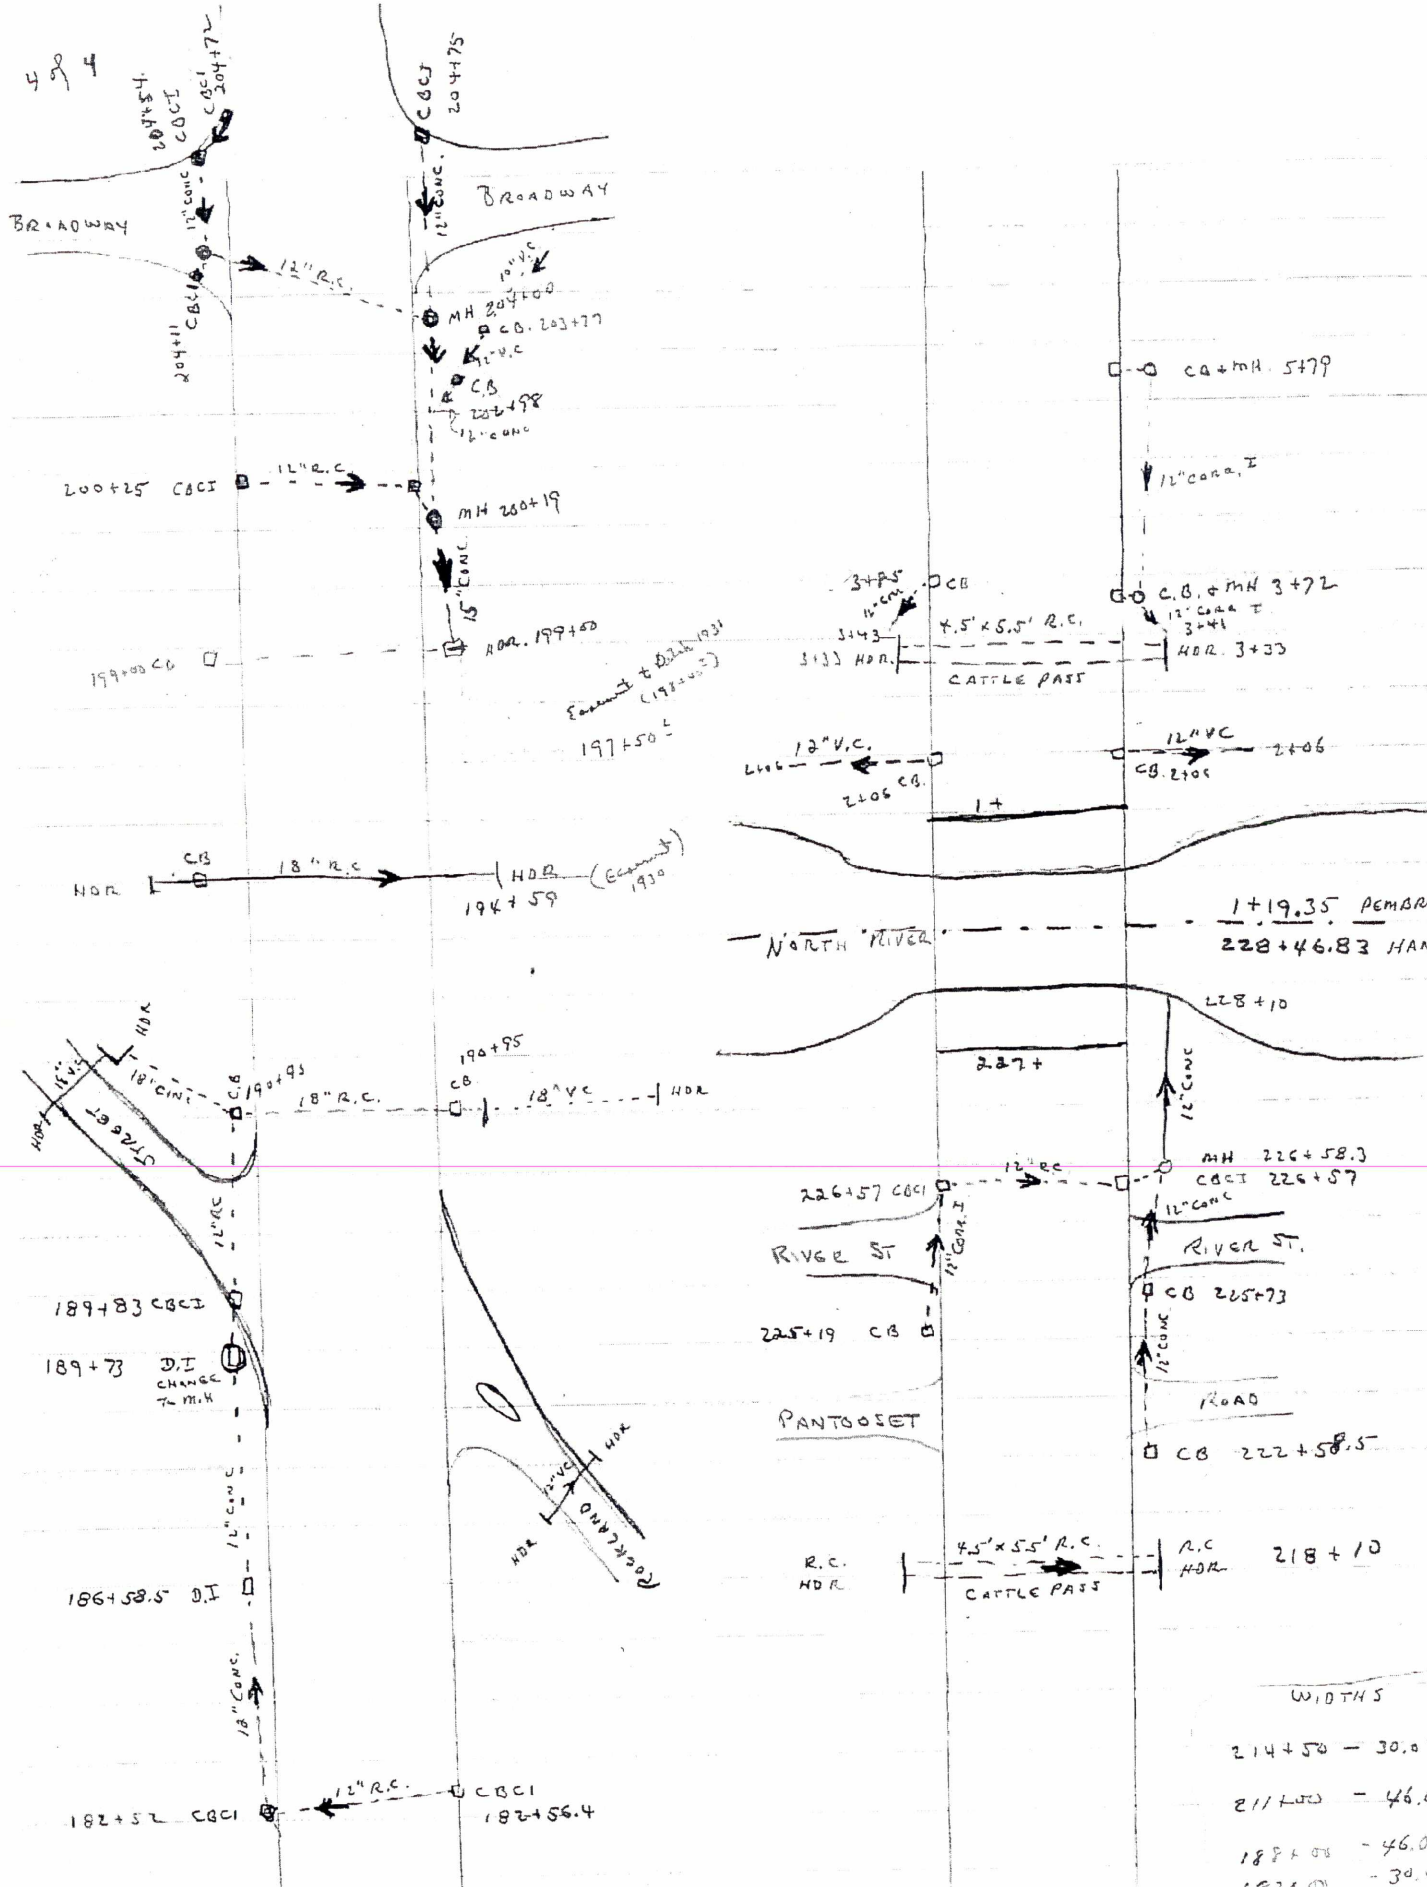 4 of 4
204+54
CBCI
CBCI
204+72
CBCI
204+75
12" CONC
12" CONC.
BROADWAY
BROADWAY
12" R.C.
10" V.C.
MH 204+00
CB. 203+77
12" V.C
CBCI
204+11
C.B
202+98
12" CONC
200+25 CBCI
12" R.C.
MH 200+19
15" CONC
199+00 CB
HDR. 199+00
1931
197+50±
HDR
CB
18" R.C
HDR
194+59
1930
HDR
18" V.C
HDR
18" CONC
C.B
190+95
18" R.C.
190+95
CB
18" VC
HDR
STREET
12" RC
189+83 CBCI
189+73 D.I
CHANGE
TO M.H
12" CONC
186+58.5 D.I
12" CONC.
182+52 CBCI
12" R.C.
CBCI
182+56.4
HDR
12" VC
HDR
ROCKLAND
CB + MH. 5+79
12" CORR. I
3+85
CB
C.B. + MH 3+72
12" CORR I
3+41
3+43
3+33 HDR.
4.5' x 5.5' R.C.
HDR. 3+33
CATTLE PASS
2+06
12" V.C.
2+06 CB.
12" VC
2+06
CB. 2+06
1+
1+19.35 PEMBR
NORTH RIVER
228+46.83 HAN
228+10
227+
12" CONC
MH 226+58.3
226+57 CBCI
12" RC
CBCI 226+57
12" CORR. I
12" CONC
RIVER ST
RIVER ST.
CB 225+73
225+19 CB
12" CONC
PANTOOSET
ROAD
CB 222+58.5
R.C.
HDR
4.5' x 5.5' R.C.
CATTLE PASS
R.C
HDR
218+10
WIDTHS
214+50 - 30.0
211+00 - 46.
188+00 - 46.0
- 30.